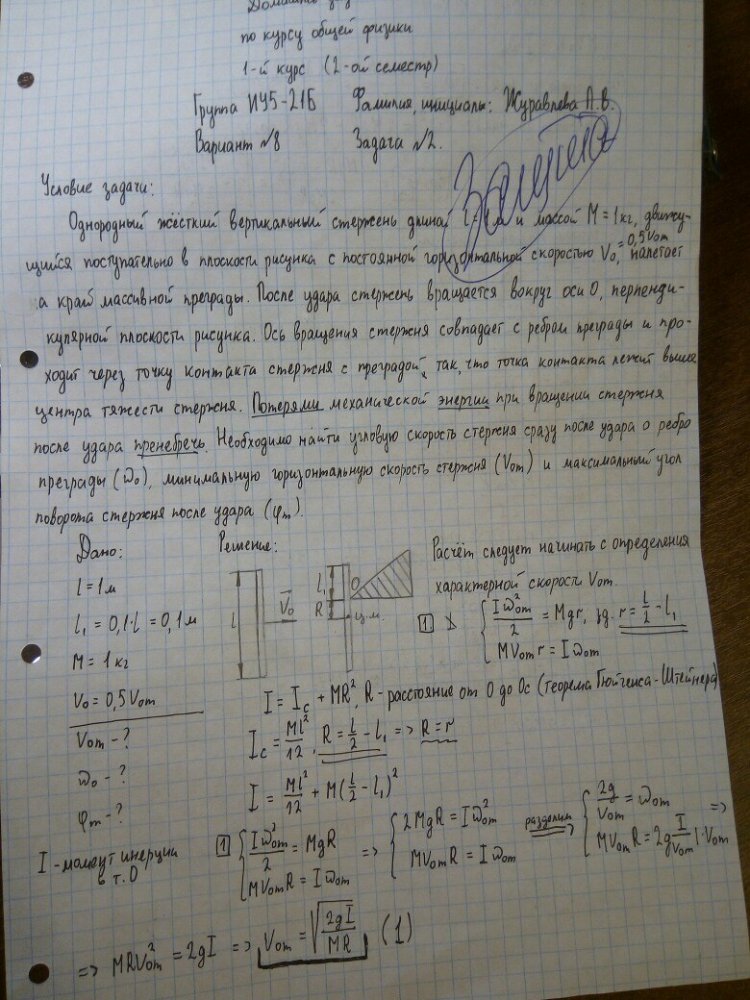 Домашнее
по курсу общей физики
1-й курс (2-ой семестр)
Группа ИУ5-21Б Фамилия, инициалы: Журавлева А.В.
Вариант №8 Задача №2.
Защита
Условие задачи:
Однородный жёсткий вертикальный стержень длиной l=1м и массой M=1кг, движу-
щийся поступательно в плоскости рисунка с постоянной горизонтальной скоростью V₀, =0,5V₀m налетает
а край массивной преграды. После удара стержень вращается вокруг оси О, перпенди-
кулярной плоскости рисунка. Ось вращения стержня совпадает с ребром преграды и про-
ходит через точку контакта стержня с преградой, так, что точка контакта лежит выше
центра тяжести стержня. Потерями механической энергии при вращении стержня
после удара пренебречь. Необходимо найти угловую скорость стержня сразу после удара о ребро
преграды (ω₀), минимальную горизонтальную скорость стержня (V₀m) и максимальный угол
поворота стержня после удара (φm).
Дано:
l=1м
l₁=0,1·l=0,1м
M=1кг
V₀=0,5V₀m
V₀m-?
ω₀-?
φm-?
I-момент инерции
в т.О
Решение:
l V₀ l₁ R O ц.м.
Расчёт следует начинать с определения
характерной скорости V₀m.
1 { Iω₀m²/2 = Mgr, где r=l/2-l₁
MV₀m r = Iω₀m
I = Ic + MR², R-расстояние от О до Ос (теорема Гюйгенса-Штейнера)
Ic = Ml²/12, R=l/2-l₁ => R=r
I = Ml²/12 + M(l/2-l₁)²
1 { Iω₀m²/2 = MgR => { 2MgR = Iω₀m² разделим => { 2g/V₀m = ω₀m =>
MV₀mR = Iω₀m MV₀mR = Iω₀m MV₀mR = 2g I/V₀m |·V₀m
=> MRV₀m² = 2gI => V₀m = √(2gI/MR) (1)